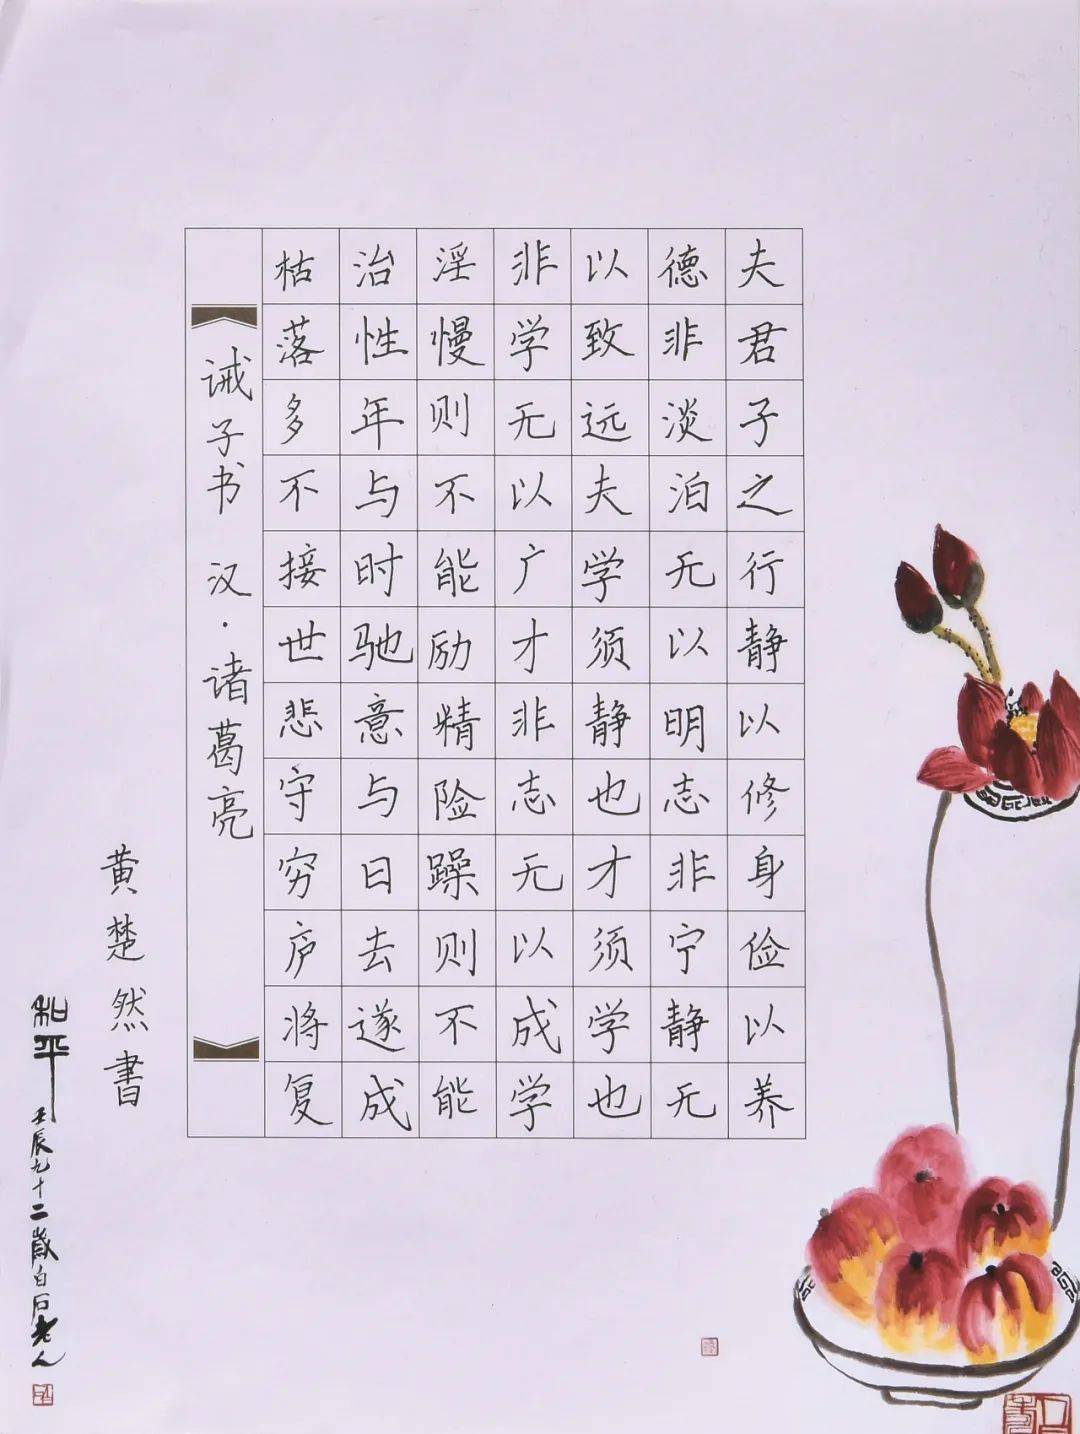 夫君子之行静以修身俭以养
德非淡泊无以明志非宁静无
以致远夫学须静也才须学也
非学无以广才非志无以成学
淫慢则不能励精险躁则不能
治性年与时驰意与日去遂成
枯落多不接世悲守穷庐将复
诫子书 汉·诸葛亮
黄楚然書
和平
壬辰九十二歲白石老人